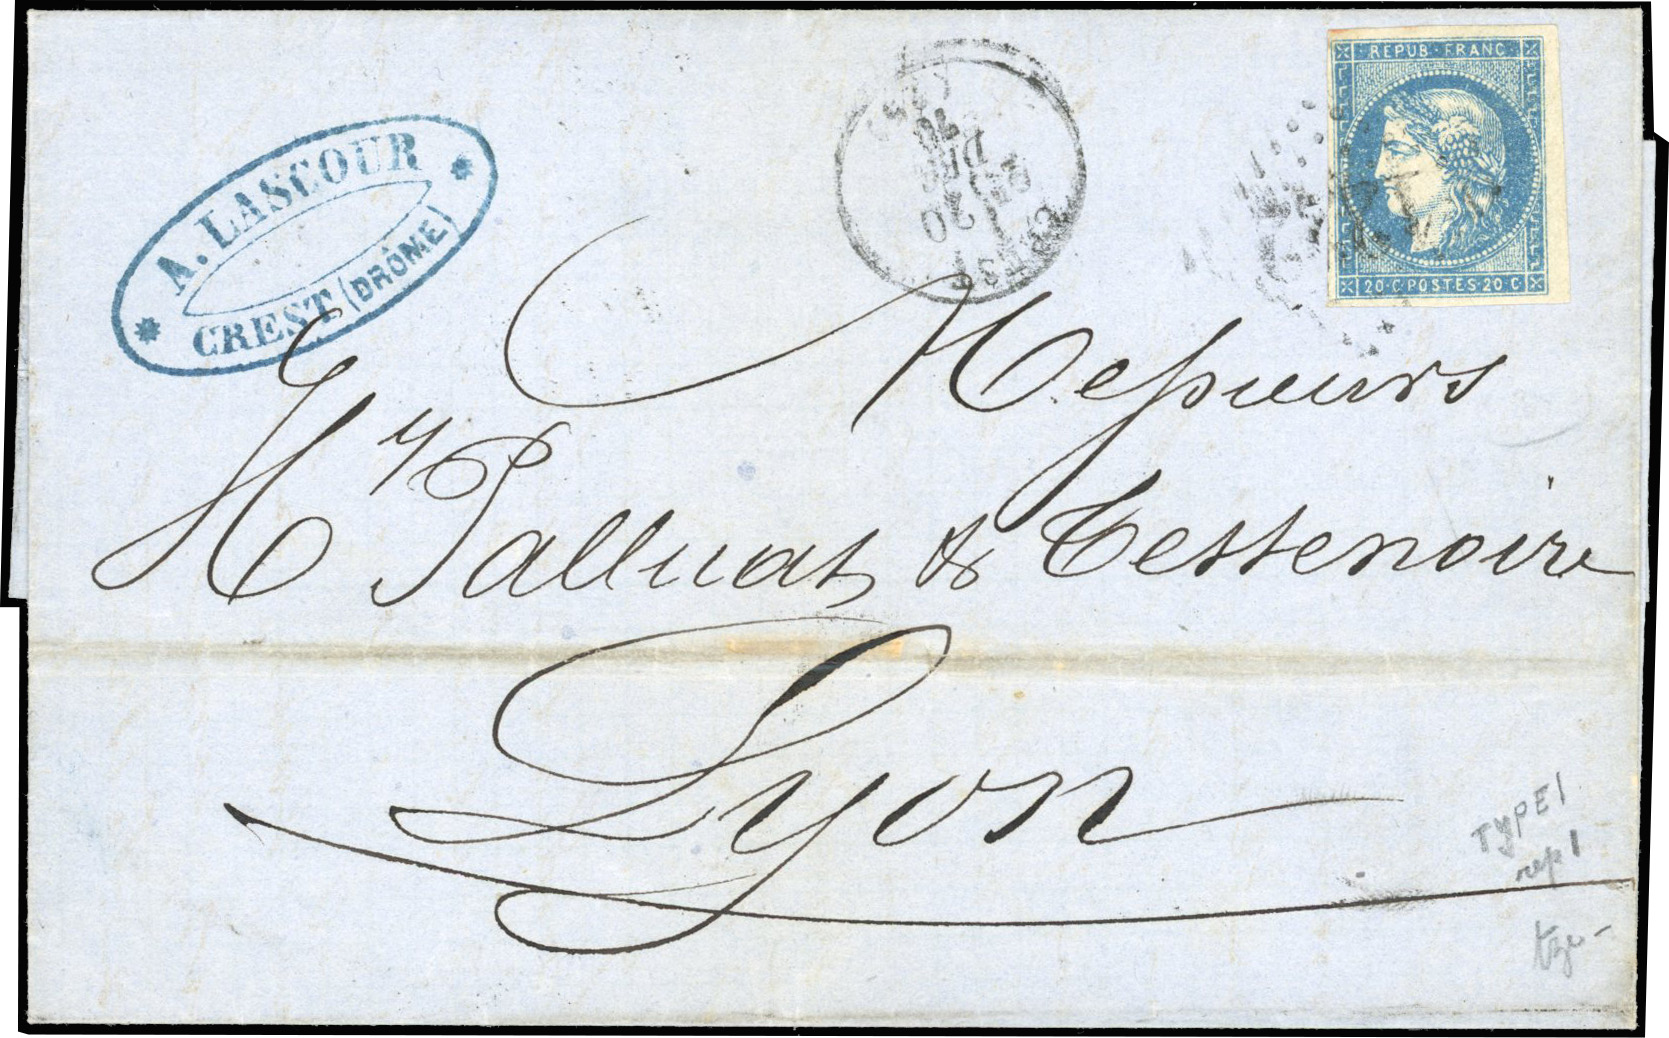 A. LASCOUR
CREST (DRÔME)
CREST
20
DEC
70
REPUB·FRANC
20·C·POSTES·20·C
Messieurs
Hy Palluat & Testenoire
Lyon
TYPE I
rep I